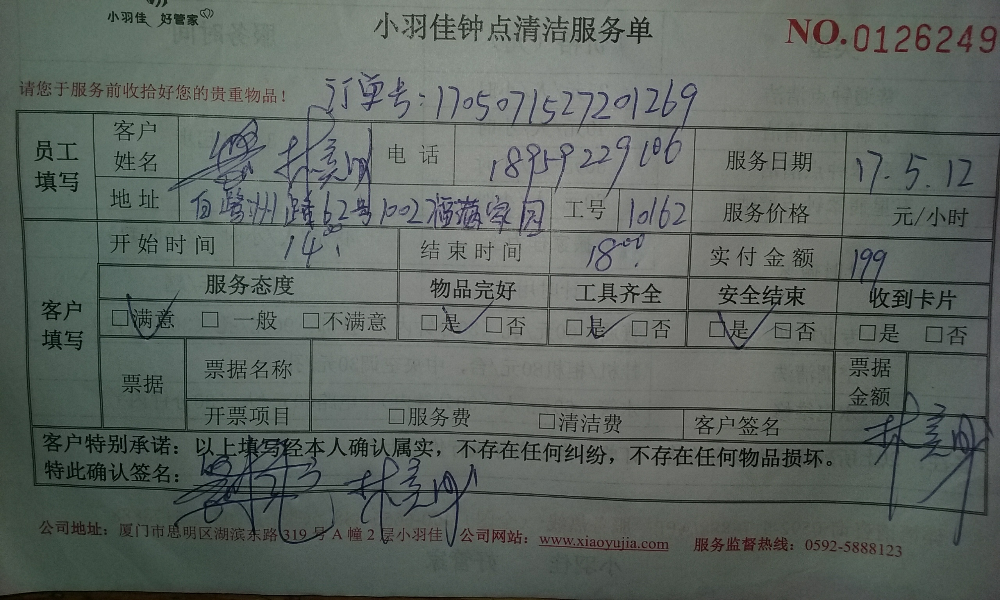 小羽佳 好管家
小羽佳钟点清洁服务单
NO.0126249
请您于服务前收拾好您的贵重物品！
订单号：1705071527201269
员工填写 客户姓名 林亮明 电话 18959229106 服务日期 17.5.12
地址 白鹭洲路62号1002福满家园 工号 10162 服务价格 元/小时
客户填写 开始时间 14:00 结束时间 18:00 实付金额 199
服务态度 物品完好 工具齐全 安全结束 收到卡片
□满意 □一般 □不满意 □是 □否 □是 □否 □是 □否 □是 □否
票据 票据名称 票据金额
开票项目 □服务费 □清洁费 客户签名 林亮明
客户特别承诺：以上填写经本人确认属实，不存在任何纠纷，不存在任何物品损坏。
特此确认签名： 林亮明
公司地址：厦门市思明区湖滨东路 319 号 A 幢 2 层小羽佳 公司网站：www.xiaoyujia.com 服务监督热线：0592-5888123